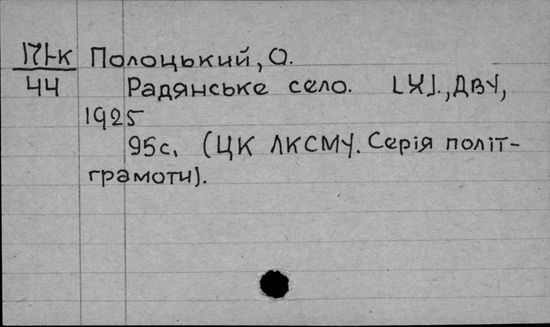 171-к Полоцький, О.
44 Радянське село. [Х]., ДВУ,
1925
95с. (ЦК ЛКСМУ. Серія політ-
грамоти).